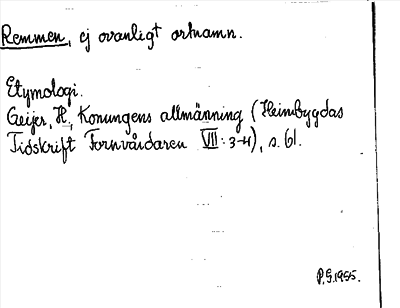 Remmen, ej ovanligt ortnamn.
Etymologi.
Geijer, H., Konungens allmänning (Heimbygdas
Tidskrift Fornvårdaren VII: 3-4), s. 61.
P.G. 1955.